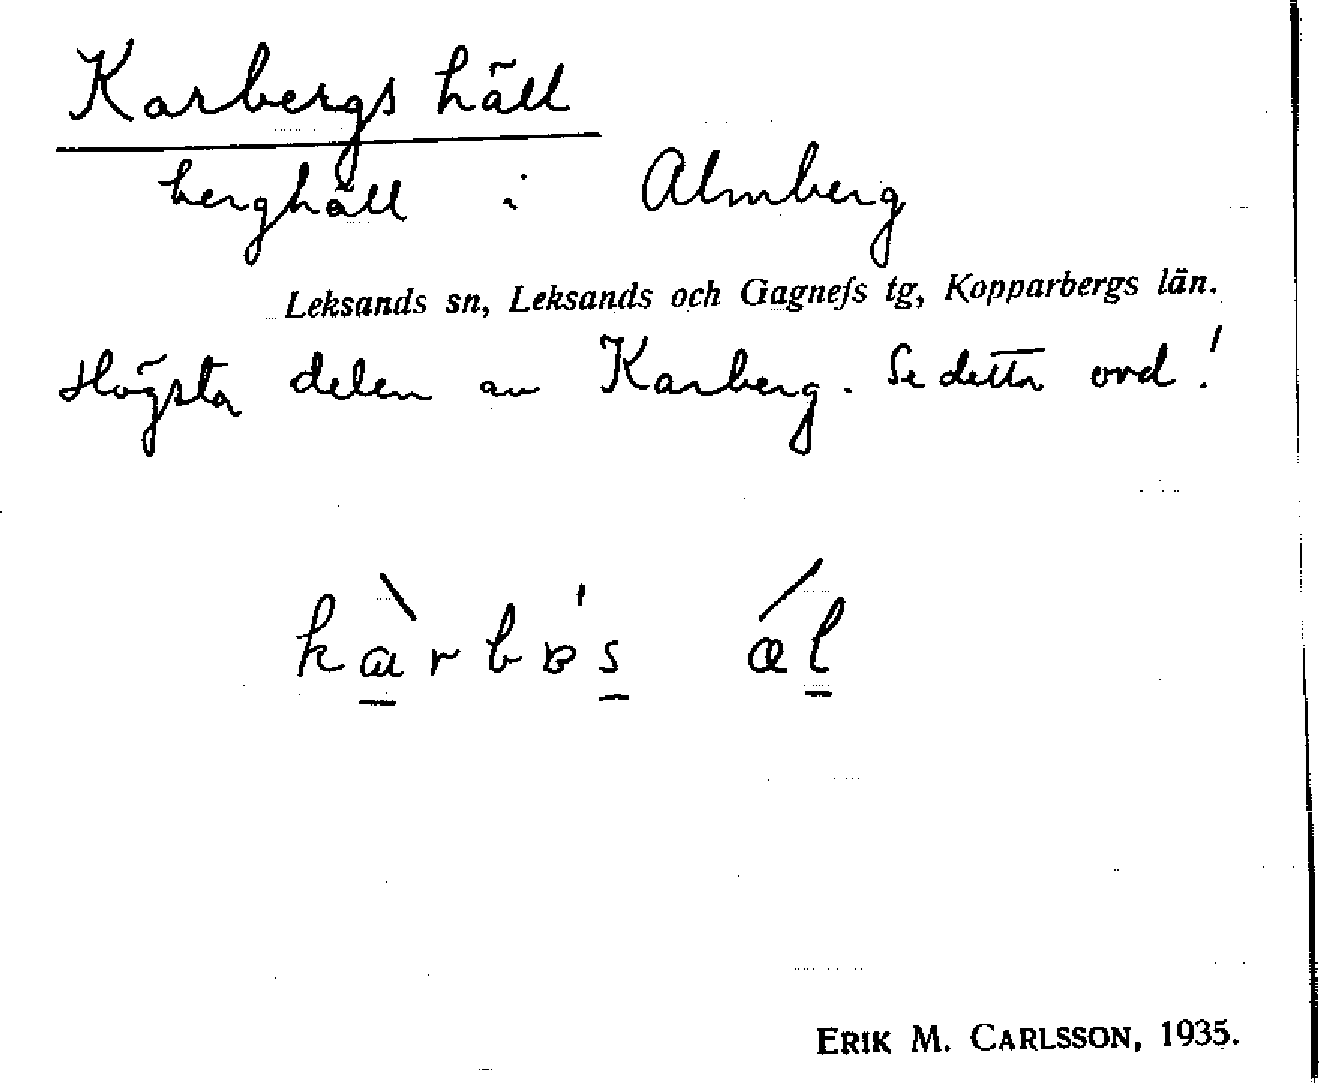 Karbergs häll
berghäll i Almberg
Leksands sn, Leksands och Gagnefs tg, Kopparbergs län.
Högsta delen av Karberg. Se detta ord!
kàrbɐs ǽl
ERIK M. CARLSSON, 1935.